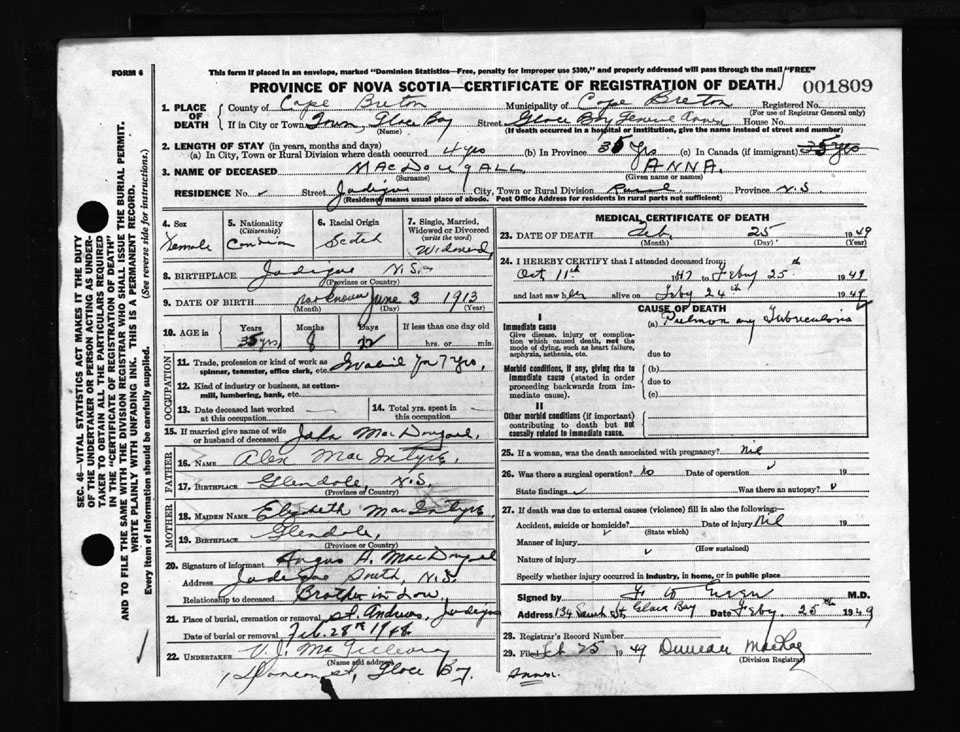 FORM 6
This form if placed in an envelope, marked "Dominion Statistics—Free, penalty for improper use $300," and properly addressed will pass through the mail "FREE"
PROVINCE OF NOVA SCOTIA—CERTIFICATE OF REGISTRATION OF DEATH
001809
1. PLACE OF DEATH
County of Cape Breton Municipality of Cape Breton Registered No.
(For use of Registrar General only)
If in City or Town Town, Glace Bay Street Glace Bay General House No.
(Name) (If death occurred in a hospital or institution, give the name instead of street and number)
2. LENGTH OF STAY (in years, months and days)
(a) In City, Town or Rural Division where death occurred 4 yrs (b) In Province 35 yrs (c) In Canada (if immigrant) 35 yrs
3. NAME OF DECEASED MACDOUGALL ANNA.
(Surname) (Given name or names)
RESIDENCE No. Street Judique City, Town or Rural Division Rural Province N.S.
(Residence means usual place of abode. Post Office Address for residents in rural parts not sufficient)
4. Sex Female
5. Nationality (Citizenship)
6. Racial Origin Scotch
7. Single, Married, Widowed or Divorced (write the word) Widowed
8. BIRTHPLACE Judique N.S.
(Province or Country)
9. DATE OF BIRTH June 3 1913
(Month) (Day) (Year)
10. AGE in Years Months Days If less than one day old
35 yrs, 8 22 hrs. or min.
OCCUPATION
11. Trade, profession or kind of work as spinner, teamster, office clerk, etc. Invalid for 7 yrs.
12. Kind of industry or business, as cotton-mill, lumbering, bank, etc.
13. Date deceased last worked at this occupation
14. Total yrs. spent in this occupation
15. If married give name of wife or husband of deceased John MacDougall,
FATHER
16. NAME Alex MacIntyre,
17. BIRTHPLACE Glendale, N.S.
(Province or Country)
MOTHER
18. MAIDEN NAME Elizabeth MacIntyre,
19. BIRTHPLACE Glendale,
(Province or Country)
20. Signature of informant Angus A. MacDougal
Address Judique South, N.S.
Relationship to deceased Brother in Law,
21. Place of burial, cremation or removal St. Andrews, Judique
Date of burial or removal Feb. 28th 1948.
22. UNDERTAKER V.J. McGillivary
(Name and address)
Glace Bay.
MEDICAL CERTIFICATE OF DEATH
23. DATE OF DEATH Feb. 25 1949
(Month) (Day) (Year)
24. I HEREBY CERTIFY that I attended deceased from:
Oct 11th 1947 to Feby 25th 1949
and last saw her alive on Feby 24th 1949
CAUSE OF DEATH
I
Immediate cause (a) Pulmonary Tuberculosis
Give disease, injury or complication which caused death, not the mode of dying, such as heart failure, asphyxia, asthenia, etc.
due to
Morbid conditions, if any, giving rise to immediate cause (stated in order proceeding backwards from immediate cause).
(b)
due to
(c)
II
Other morbid conditions (if important) contributing to death but not causally related to immediate cause.
25. If a woman, was the death associated with pregnancy? nil
26. Was there a surgical operation? no Date of operation 19
State findings Was there an autopsy?
27. If death was due to external causes (violence) fill in also the following:—
Accident, suicide or homicide? Date of injury Nil 19
(State which)
Manner of injury
(How sustained)
Nature of injury
Specify whether injury occurred in industry, in home, or in public place
Signed by M.D.
Address 134 South St. Glace Bay Date Feby. 25th 1949
28. Registrar's Record Number
29. Filed Feb 25 1949 Duncan MacKay
(Division Registrar)
SEC. 46—VITAL STATISTICS ACT MAKES IT THE DUTY
OF THE UNDERTAKER OR PERSON ACTING AS UNDERTAKER TO OBTAIN ALL THE PARTICULARS REQUIRED
IN THE "CERTIFICATE OF REGISTRATION OF DEATH"
AND TO FILE THE SAME WITH THE DIVISION REGISTRAR WHO SHALL ISSUE THE BURIAL PERMIT.
WRITE PLAINLY WITH UNFADING INK. THIS IS A PERMANENT RECORD.
Every item of information should be carefully supplied. (See reverse side for instructions.)